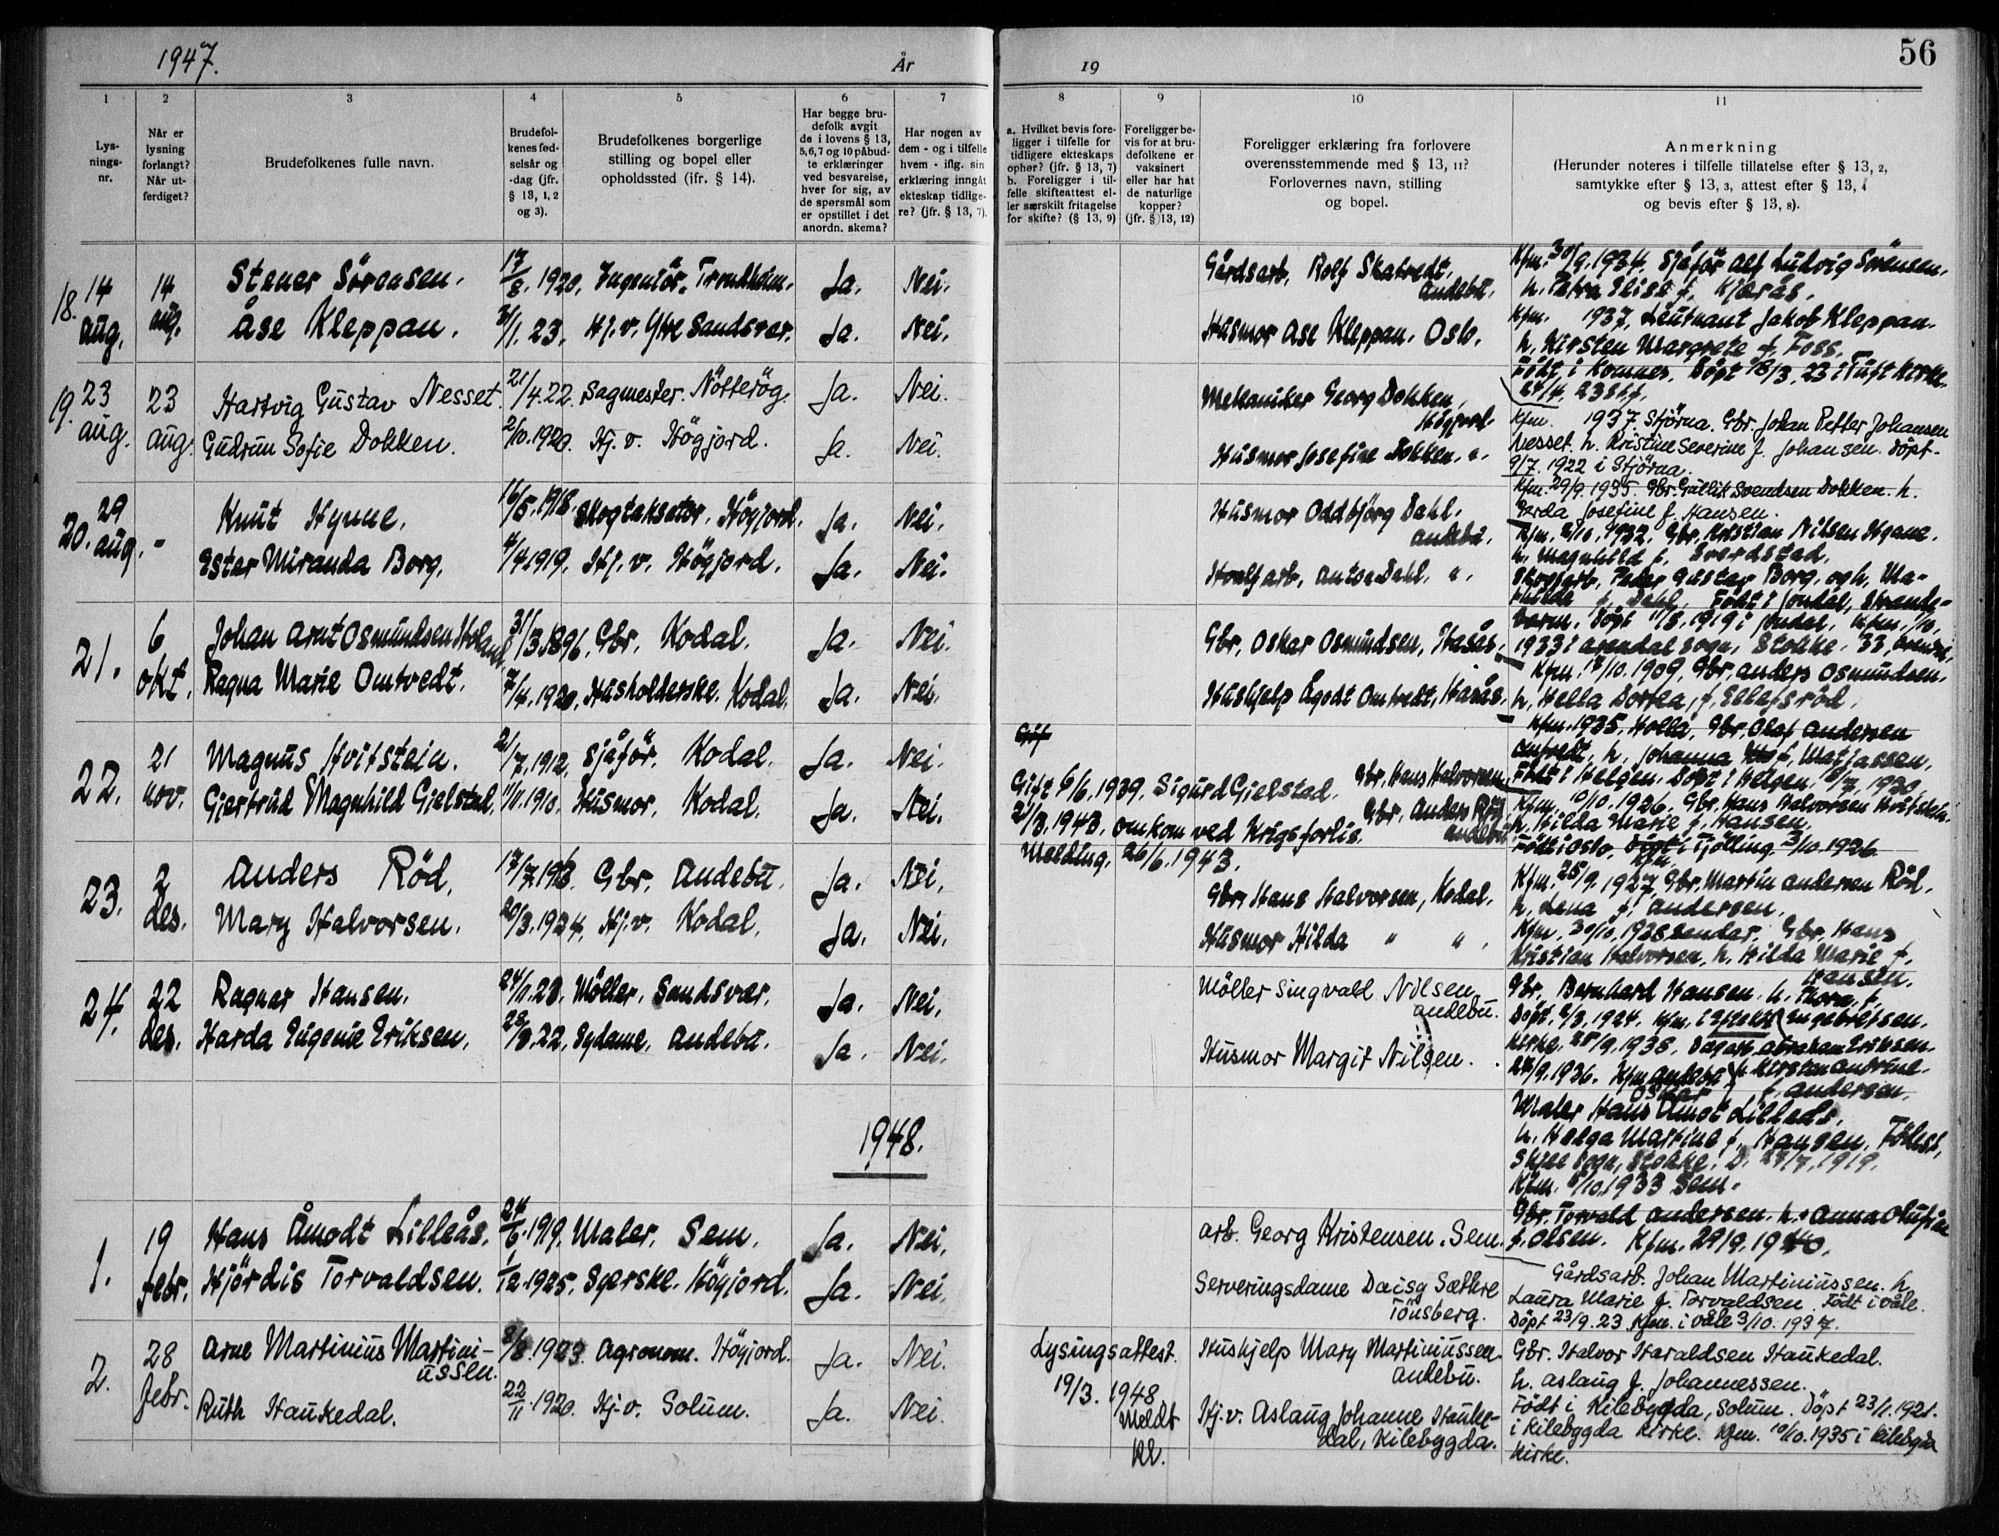 1947.
År
19
56
1
2
3
4
5
6
7
8
9
10
11
Lys-
nings-
nr.
Når er
lysning
forlangt?
Når ut-
ferdiget?
Brudefolkenes fulle navn.
Brudefol-
kenes fød-
selsår og
-dag (jfr.
§ 13, 1, 2
og 3).
Brudefolkenes borgerlige
stilling og bopel eller
opholdssted (ifr. § 14).
Har begge bru-
defolk avgit
de i lovens § 13,
5,6,7 og 10 påbud-
te erklæringer
ved besvarelse,
hver for sig, av
de spørsmål som
er opstillet i det
anordn. skema?
Har nogen av
dem - og i tilfelle
hvem - iflg. sin
erklæring inngått
ekteskap tidlige-
re? (jfr. § 13, 7).
a. Hvilket bevis fore-
ligger i tilfelle for
tidligere ekteskaps
ophør? (jfr. § 13, 7)
b. Foreligger i til-
felle skifteattest el-
ler særskilt fritagelse
for skifte? (§ 13, 9)
Foreligger be-
vis for at bru-
defolkene er
vaksinert
eller har hat
de naturlige
kopper?
(jfr. § 13, 12)
Foreligger erklæring fra forlovere
overensstemmende med § 13, 11?
Forlovernes navn, stilling
og bopel.
Anmerkning
(Herunder noteres i tilfelle tillatelse efter § 13, 2,
samtykke efter § 13, 3, attest efter § 13, 4
og bevis efter § 13, 8).
18. 14 aug. 14 aug. Stener Sörensen. 17/8. 1920. Ingeniör. Trondheim. Ja. Nei.
Åse Kleppan. 23. Hj.v. Ytre Sandsvær. Ja. Nei.
Gårdsarb. Rolf Skatvedt,
Andebu.
Husmor Åse Kleppan. Oslo.
Kfm. 30/9. 1934. Sjåför Alf Ludvig Sörensen.
h. Petra Elise f. Kjærås.
Kfm. 1937. Leutnant Jakob Kleppan.
h. Kirsten Margrete f. Foss.
Född i Komnes. Döpt 18/3. 23 i Tuft Kirke.
19. 23 aug. 23 aug. Hartvig Gustav Nesset. 21/4. 22. Sagmester. Nötteröy. Ja. Nei.
Gudrun Sofie Dokken. 2/10. 1920. Hj. v. Högjord. Ja. Nei.
Mekaniker Georg Dokken,
Högjord.
Husmor Josefine Dokken. "
Kfm. 1937. Stjörna. Gbr. Johan Petter Johansen
Nesset. h. Kristine Severine f. Johansen. Döpt
9/7. 1922 i Stjörna.
Kfm. 29/9. 1935. Gbr. Gullik Svendsen Dokken. h.
Gerda Josefine f. Hansen.
20. 29 aug. - Knut Hynne. 16/5. 1918. Skogtaksator. Högjord. Ja. Nei.
Ester Miranda Borg. 1919. Hj. v. Högjord. Ja. Nei.
Husmor Oddbjörg Dahl.
Andebu.
Hvalfarb. Anton Dahl. "
Kfm. 2/10. 1932. Gbr. Kristian Nilsen Hynne.
h. Magnhild f. Sverdstad.
Skogsarb. Peder Gustav Borg. og h. Ma-
thilde f. Dahl. Född i Jondal, Strande-
21. 6 okt. Johan Arnt Osmundsen Holand 31/3. 1896. Gbr. Kodal. Ja. Nei.
Ragna Marie Omtvedt. 7/4. 1920. Husholderske. Kodal. Ja. Nei.
Gbr. Oskar Osmundsen, Hasås.
Hushjelp Ågodt Omtvedt, Hasås.
Kfm. 17/10. 1909. Gbr. Anders Osmundsen.
h. Hella Dortea, f. Ellefsröd.
Kfm. 1935. Holla. Gbr. Olaf Andersen
Omtvedt, h. Johanna f. Matjassen.
22. 21 nov. Magnus Hvitstein. 21/7. 1912. Sjåför. Kodal. Ja. Nei.
Gjertrud Magnhild Gjelstad. 1910. Husmor. Kodal. Ja. Nei.
Gift 6/6. 1939. Sigurd Gjelstad.
2/3. 1943. omkom ved Krigsforlis.
Melding. 26/6. 1943.
Gbr. Hans Halvorsen.
Gbr. Anders Röd,
Andebu
Kfm. 10/10. 1926. Gbr. Hans Halvorsen Hvitstein.
h. Hilda Marie f. Hansen.
Född i Oslo. Kfm. i Tjölling. 3/10. 1926
23. 2 des. Anders Röd. Gbr. Andebu. Ja. Nei.
Mary Halvorsen. 20/3. 1924. Hj. v. Kodal. Ja. Nei.
Gbr. Hans Halvorsen, Kodal.
Husmor Hilda " "
Kfm. 25/9. 1927. Gbr. Martin Andersen Röd.
h. Lena f. Andersen.
Kfm. 30/10. 1938. Gbr. Hans
Kristian Halvorsen, h. Hilda Marie f.
Hansen.
24. 22 des. Ragnar Hansen. Möller. Sandsvær. Ja. Nei.
Harda Eugenie Eriksen. Sydame. Andebu. Ja. Nei.
Möller Singvald Nilsen
Andebu.
Husmor Margit Nilsen.
Gbr. Bernhard Hansen. h. Thora f.
Engebretsen.
Kirke. 25/9. 1938. Abraham Eriksen.
h. Kirsten Andrine
f. Andersen.
1948.
Maler Hans Oskar Åmot Lilleås.
h. Helga Martine f. Hansen. Födest.
Skjee Sogn, Stokke. D. 1919.
Kfm. 1933 Sem.
1. 19 febr. Hans Åmodt Lilleås. 1919. Maler. Sem. Ja. Nei.
Hjördis Torvaldsen. 1/12. 1925. Syerske. Högjord. Ja. Nei.
Arb. Georg Kristensen. Sem.
Serveringsdame Daisy Sæthre
Tönsberg.
Gbr. Torvald Andersen. h. Anna Olufine
f. Olsen. Kfm. 29/9. 1940.
Gårdsarb. Johan Martiniussen. h.
Laura Marie f. Torvaldsen. Födt i Våle.
Döpt 23/9. 23 Kfm. i Våle 3/10. 1937.
2. 28 febr. Arne Martinius Martini-
ussen. 8/8. 1923. Agronom. Högjord. Ja. Nei.
Ruth Haukedal. 22/11. 1920. Hj. v. Solum. Ja. Nei.
Lysingsattest.
19/3. 1948
Meldt
Kl.
Hushjelp Mary Martiniussen.
Andebu.
Hj. v. Aslaug Johanne Hauke-
dal, Kilebygda.
Gbr. Halvor Haraldsen Haukedal.
h. Aslaug f. Johannessen.
Födt i Kilebygda, Solum. Döpt 23/1. 1921.
i Kilebygda Kirke. Kfm. 10/10. 1935 i Kilebygda
Kirke.